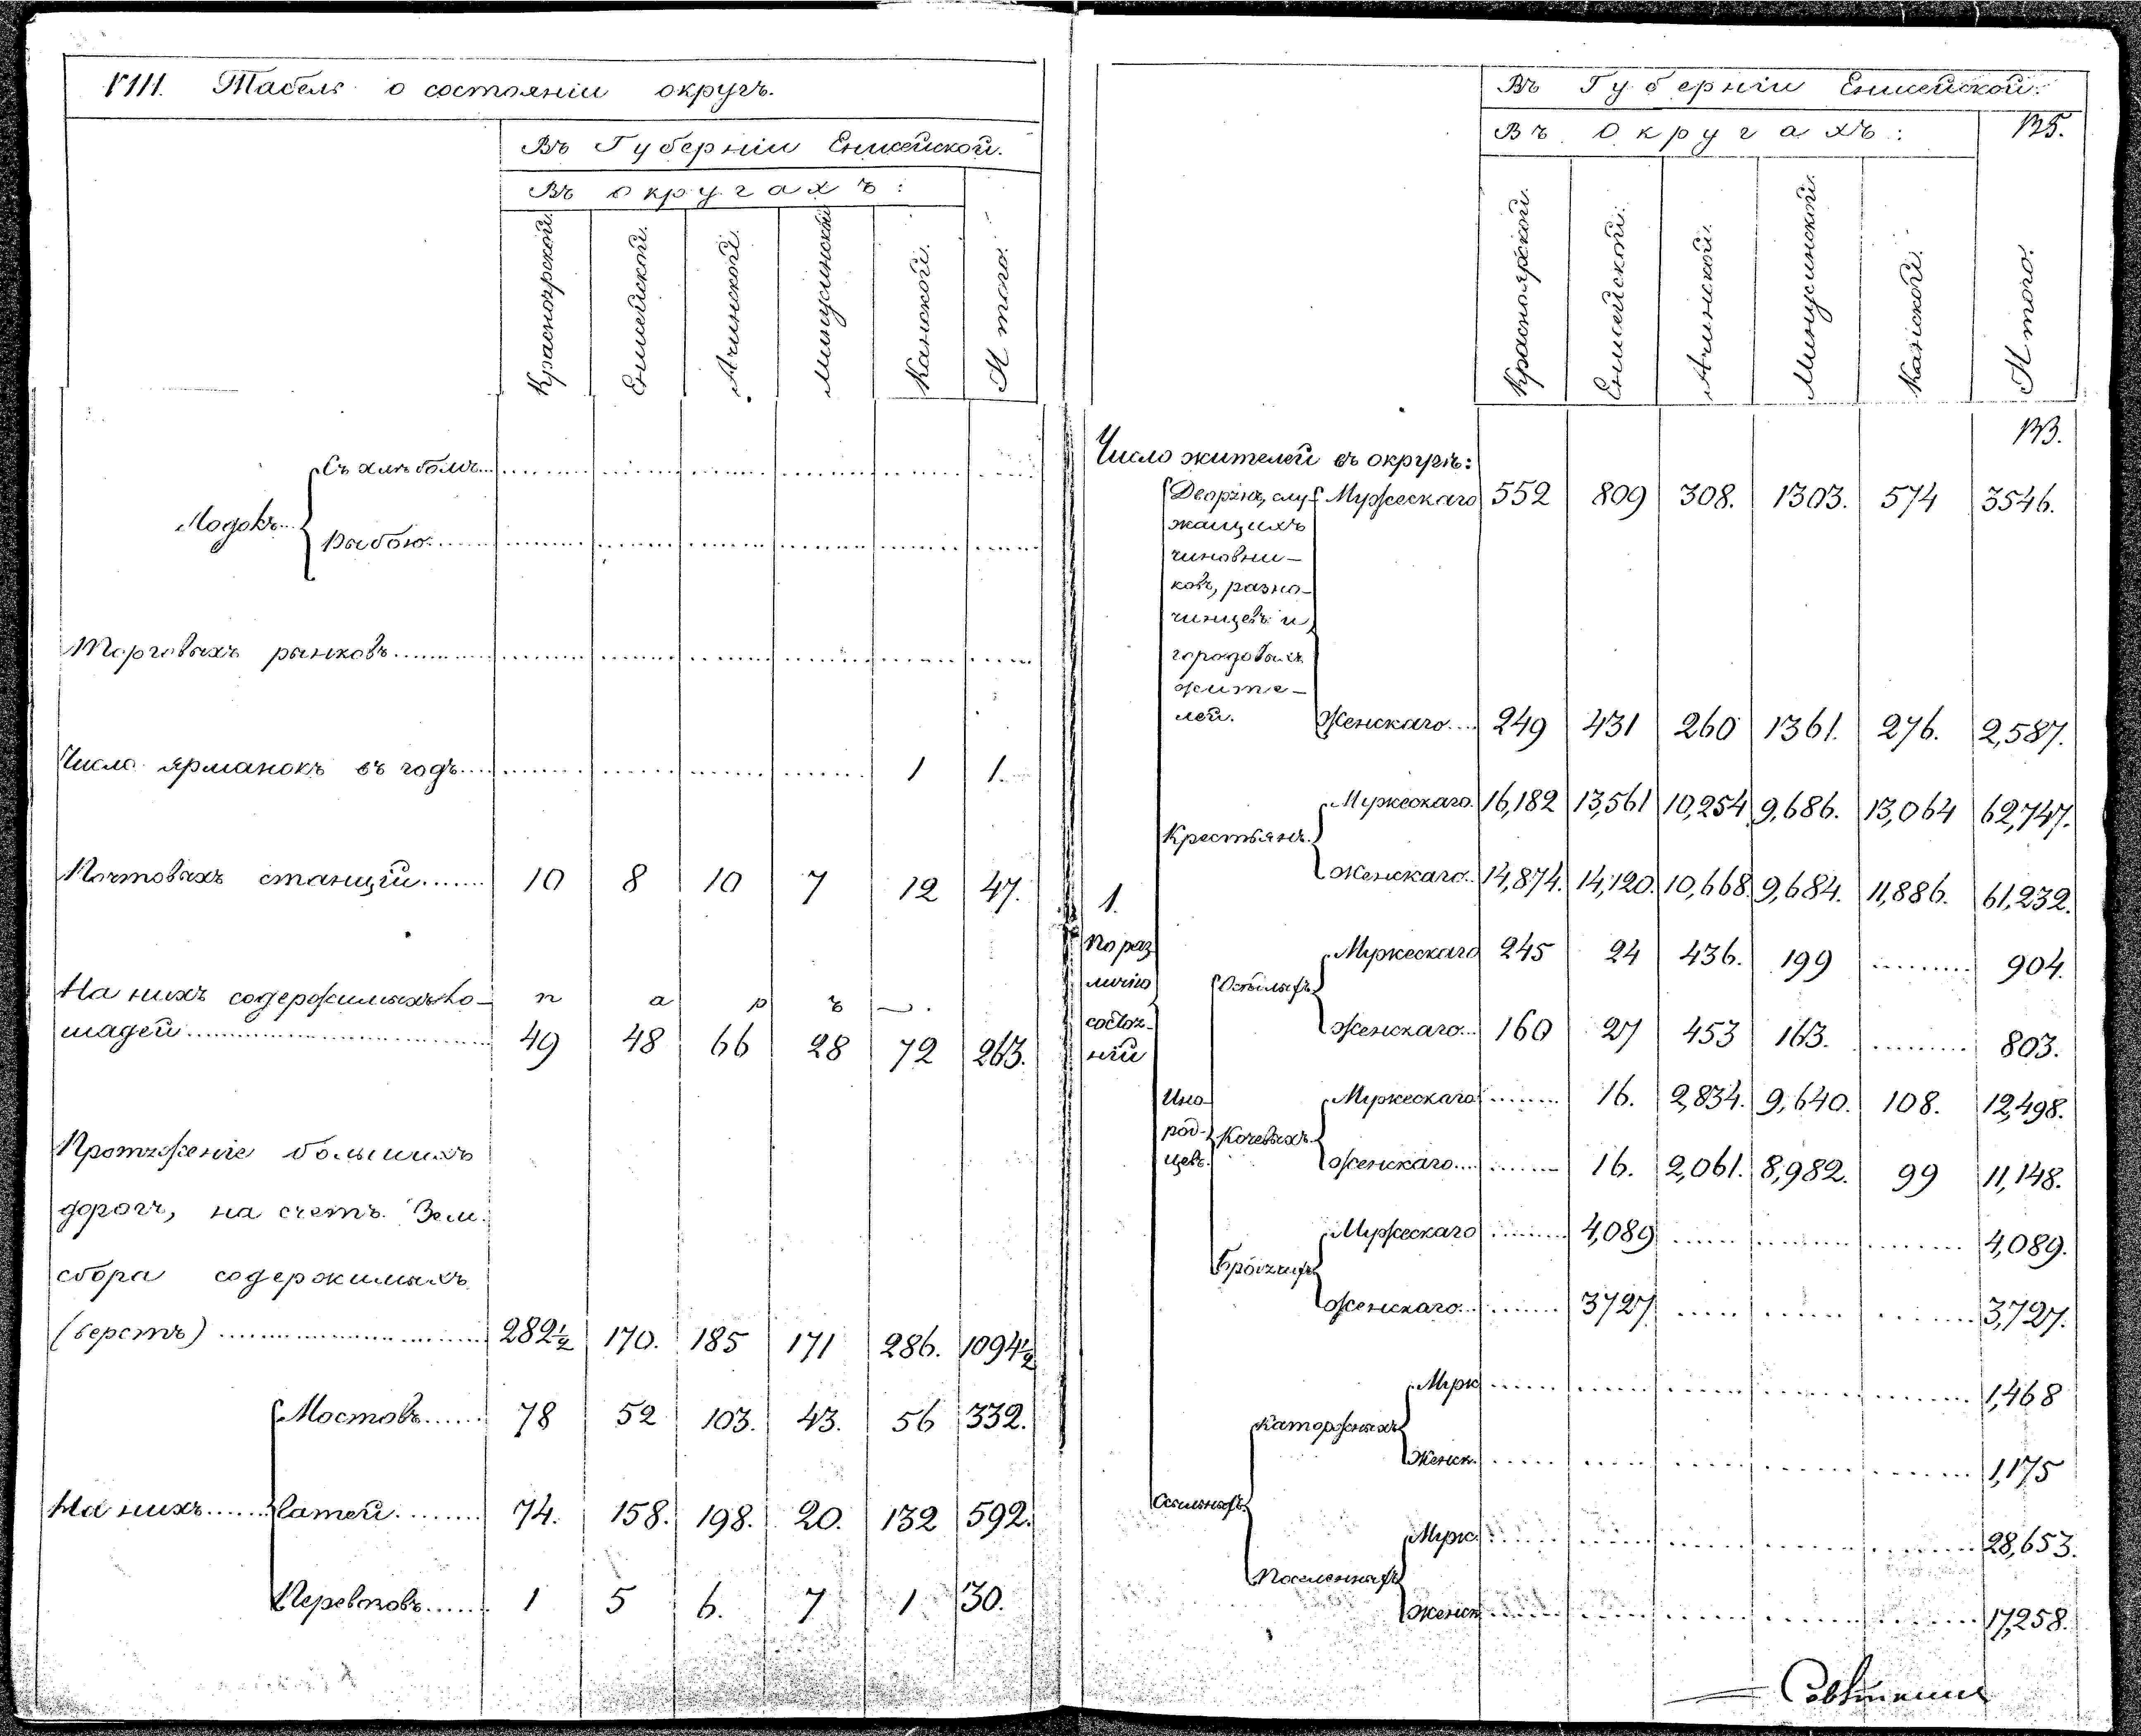 VIII. Табель о состоянiи округъ.
Въ Губернiи Енисейской.
Въ округахъ:
Красноярской. Енисейской. Ачинской. Минусинской Канской. Итого.
Лодокъ
Съ хлѣбомъ
Рыбою
Торговыхъ рынковъ
Число ярманокъ въ годъ 1 1.
Почтовыхъ станцiй 10 8 10 7 12 47.
На нихъ содержимыхъ ло-
шадей
п а р ъ
49 48 66 28 72 263.
Протяженiе большихъ
дорогъ, на счетъ Зем.
сбора содержимыхъ
(верстъ) 282½ 170. 185 171 286. 1094½
На нихъ
Мостовъ 78 52 103. 43. 56 332.
Гатей 74. 158. 198. 20. 132 592.
Перевозовъ 1 5 6. 7 1 30.
Въ Губернiи Енисейской.
Въ округахъ:
Красноярской. Енисейской. Ачинской. Минусинской. Канской. Итого.
Число жителей въ округѣ:
1.
По раз
личiю
состоя-
нiй
Дворянъ, слу-
жащихъ
чиновни-
ковъ, разно-
чинцевъ и
городовыхъ
жите-
лей.
Мужескаго 552 809 308. 1303. 574 3546.
Женскаго 249 431 260 1361. 276. 2,587.
Крестьянъ.
Мужескаго. 16,182 13,561 10,254 9,686. 13,064 62,747.
Женскаго. 14,874. 14,120. 10,668. 9,684. 11,886. 61,232.
Ино-
род-
цевъ.
Осѣдлыхъ
Мужескаго 245 24 436. 199 904.
Женскаго 160 27 453 163. 803.
Кочевыхъ
Мужескаго 16. 2,834. 9,640. 108. 12,498.
Женскаго 16. 2,061. 8,982. 99 11,148.
Бродячихъ
Мужескаго 4,089 4,089.
Женскаго 3727 3,727.
Ссыльныхъ.
Каторжныхъ
Муж 1,468
Женск. 1,175
Поселенныхъ
Муж. 28,653.
Женск 17,258.